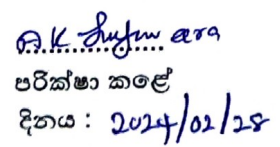 A.K
පරික්ෂා කළේ
දිනය : 2024/02/28